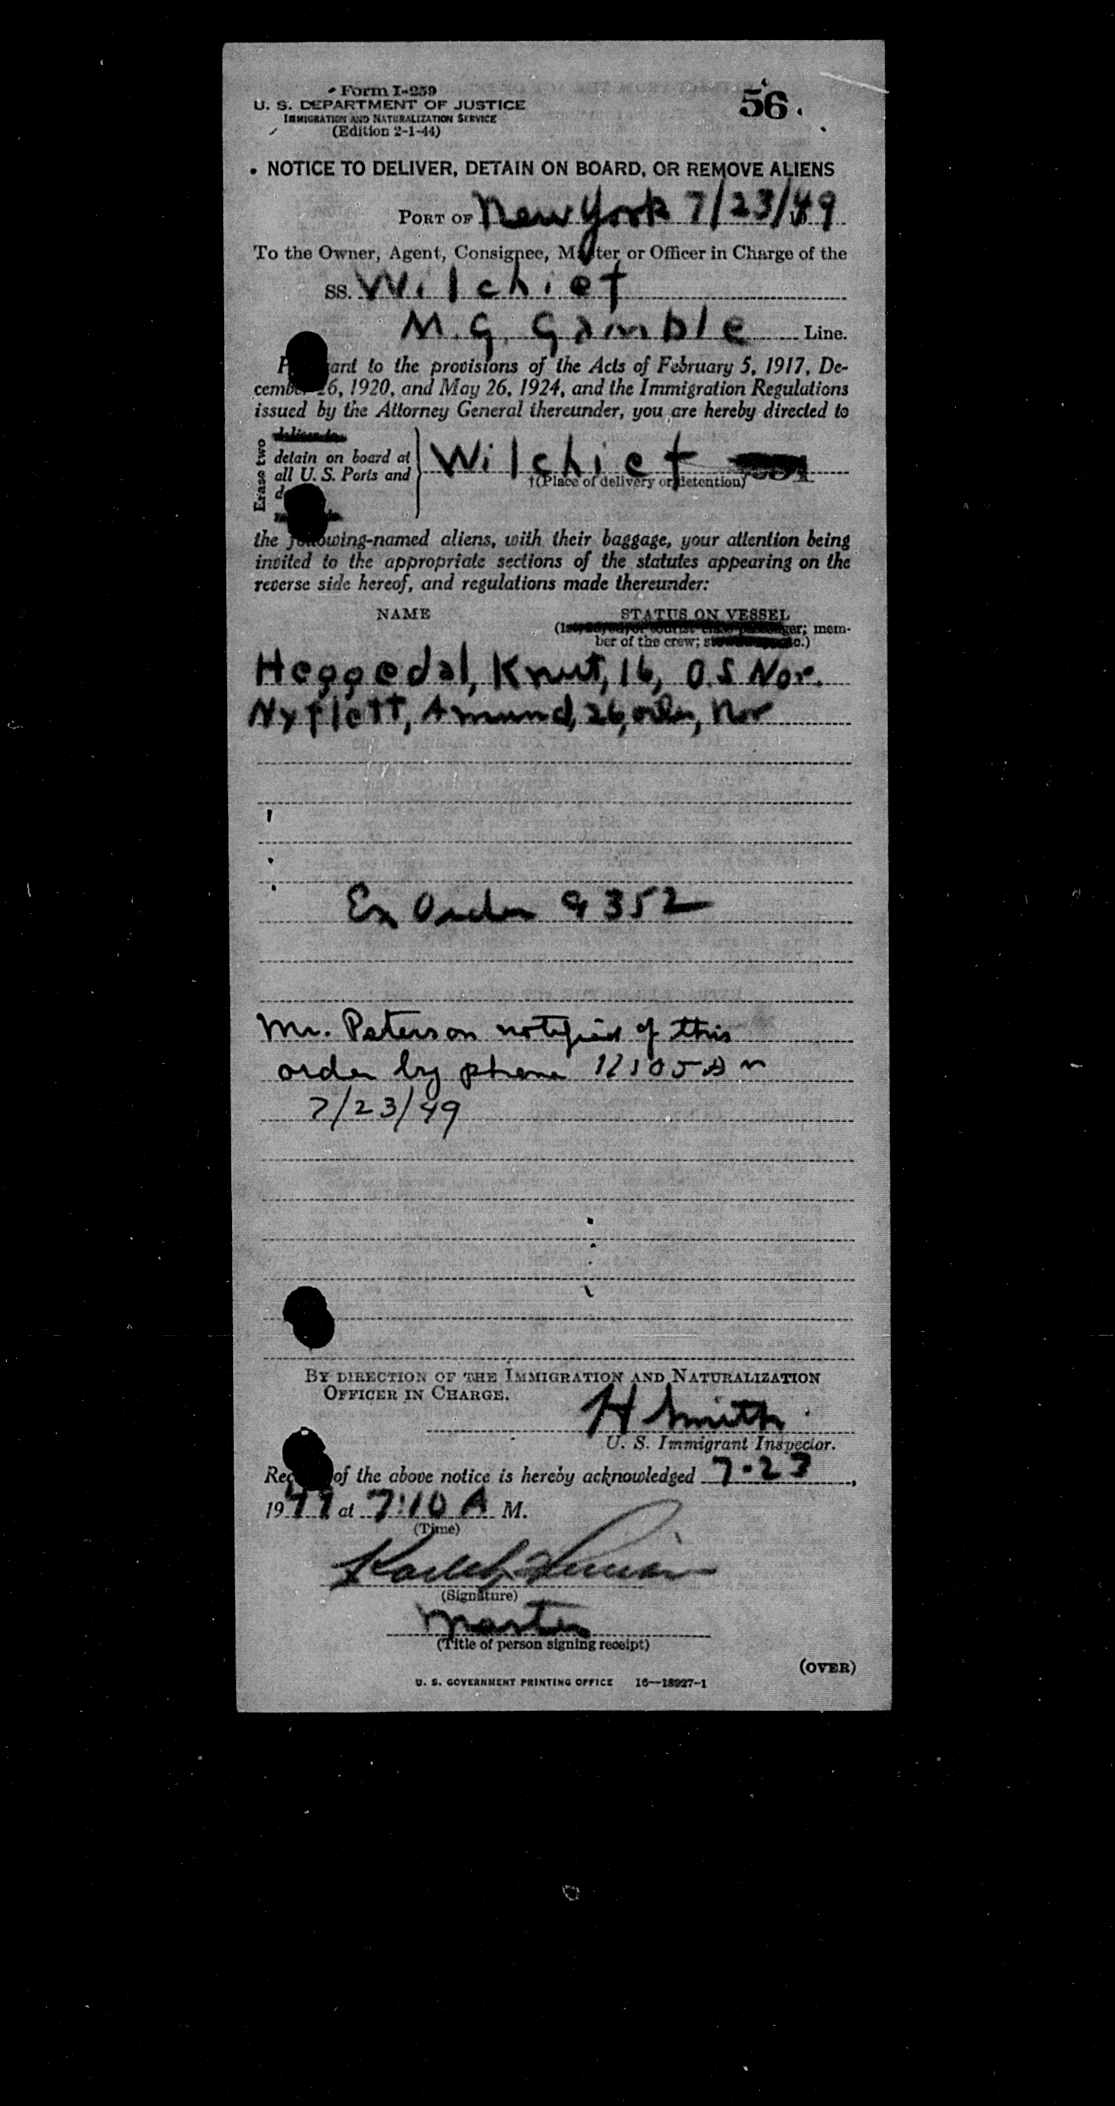 Form I-259
56
U. S. DEPARTMENT OF JUSTICE
IMMIGRATION AND NATURALIZATION SERVICE
(Edition 2-1-44)
NOTICE TO DELIVER, DETAIN ON BOARD, OR REMOVE ALIENS
PORT OF New York 7/23/49
To the Owner, Agent, Consignee, Master or Officer in Charge of the
SS. Wilchief
M.G. Gamble Line.
to the provisions of the Acts of February 5, 1917, De-
26, 1920, and May 26, 1924, and the Immigration Regulations
issued by the Attorney General thereunder, you are hereby directed to
Erase two
detain on board at
all U. S. Ports and
Wilchief
†(Place of delivery or detention)
the following-named aliens, with their baggage, your attention being
invited to the appropriate sections of the statutes appearing on the
reverse side hereof, and regulations made thereunder:
NAME STATUS ON VESSEL
mem-
ber of the crew;
Heggedal, Knut, 16, O.S Nor.
Nyflott, Amund, 26, oiler, Nor
Ex Order 9352
Mr. Peterson notified of this
order by phone
7/23/49
BY DIRECTION OF THE IMMIGRATION AND NATURALIZATION
OFFICER IN CHARGE.
H Smith
U. S. Immigrant Inspector.
of the above notice is hereby acknowledged 7-23,
1949 at 7:10 A M.
(Time)
(Signature)
Master
(Title of person signing receipt)
(OVER)
U. S. GOVERNMENT PRINTING OFFICE 16—18927-1